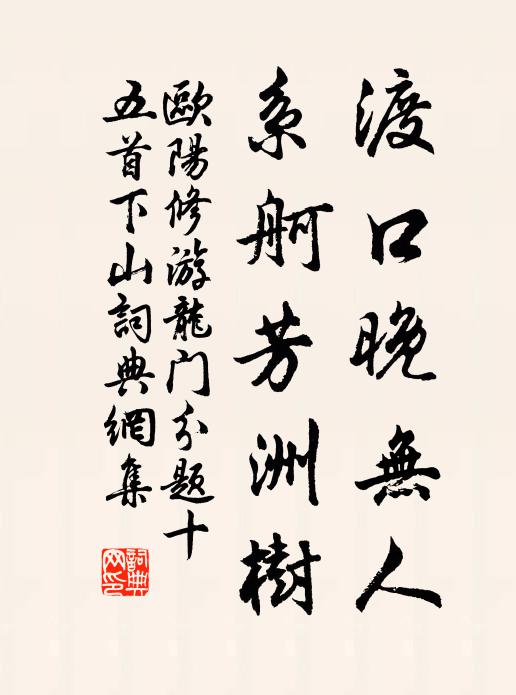 渡口晚無人
系舸芳洲樹
歐陽修游龍门分题十
五首下山詞典網集
詞典网印